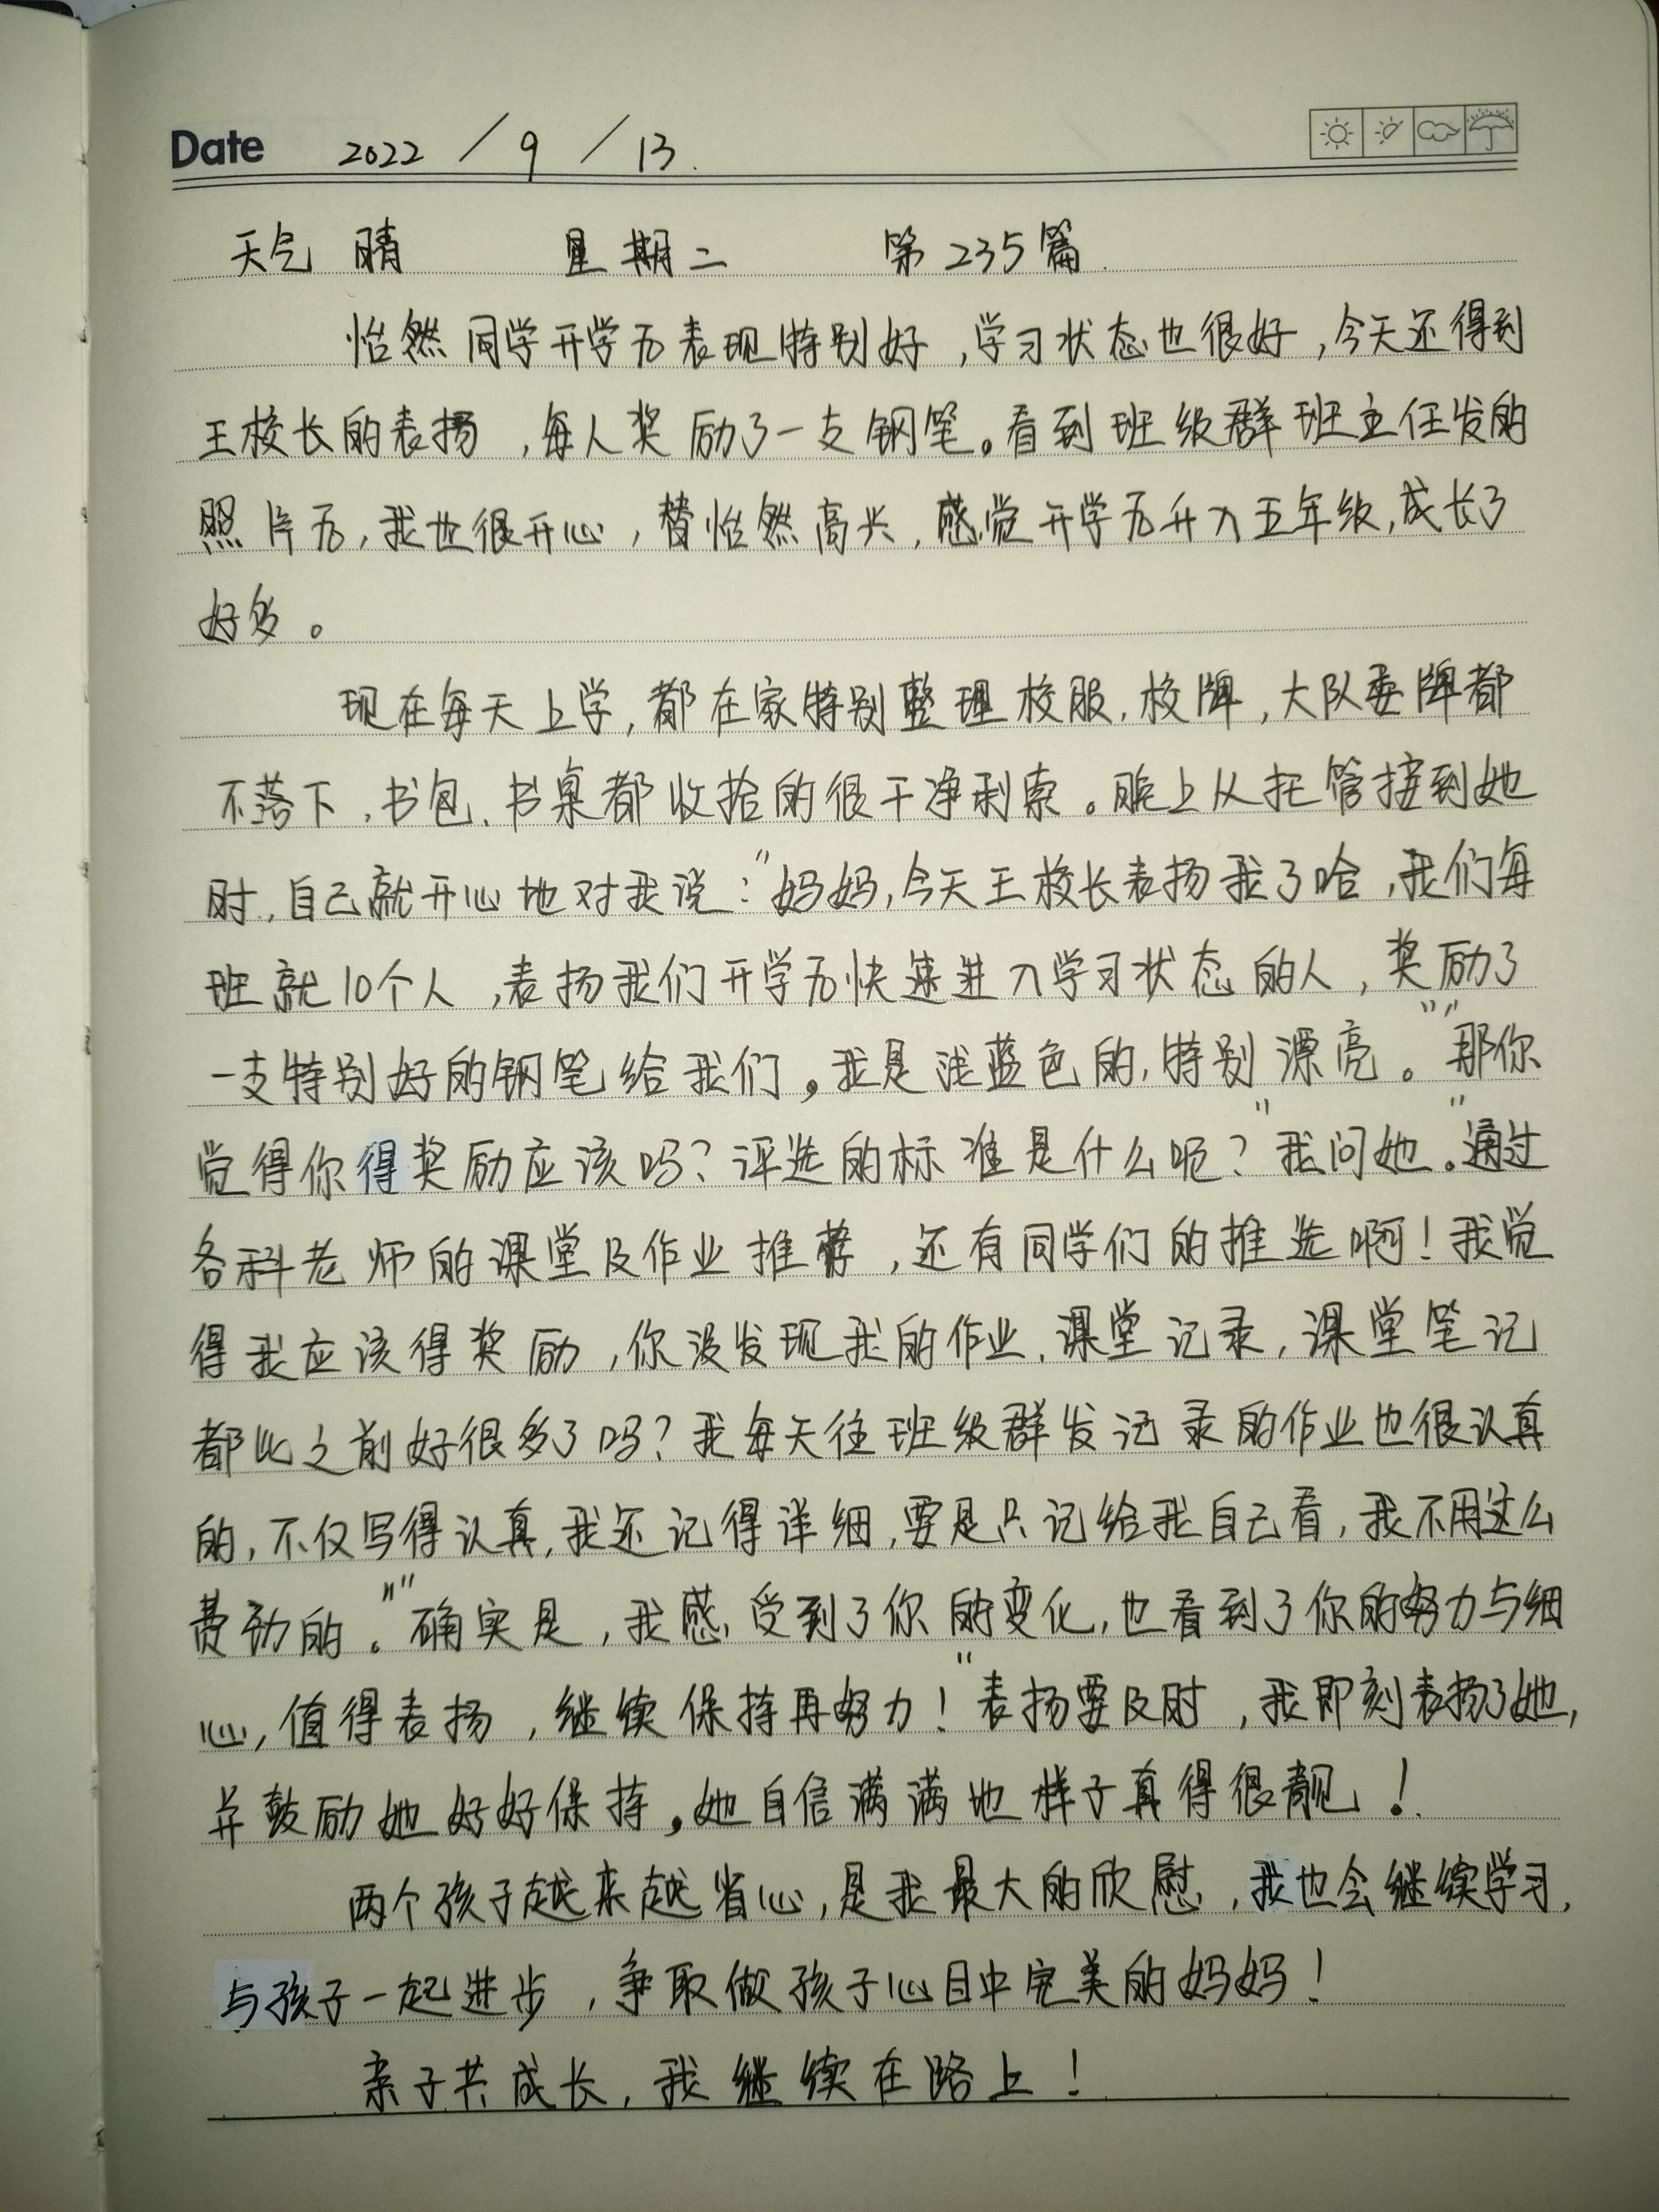 Date 2022 / 9 / 13.
天气 晴 星期二 第235篇
怡然同学开学后表现特别好，学习状态也很好，今天还得到
王校长的表扬，每人奖励了一支钢笔。看到班级群班主任发的
照片后，我也很开心，替怡然高兴，感觉开学后升入五年级，成长了
好多。
现在每天上学，都在家特别整理校服，校牌，大队委牌都
不落下，书包、书桌都收拾的很干净利索。晚上从托管接到她
时，自己就开心地对我说：“妈妈，今天王校长表扬我了哈，我们每
班就10个人，表扬我们开学后快速进入学习状态的人，奖励了
一支特别好的钢笔给我们，我是浅蓝色的，特别漂亮。”“那你
觉得你得奖励应该吗？评选的标准是什么呢？”我问她。“通过
各科老师的课堂及作业推荐，还有同学们的推选啊！我觉
得我应该得奖励，你没发现我的作业、课堂记录，课堂笔记
都比之前好很多了吗？我每天往班级群发记录的作业也很认真
的，不仅写得认真，我还记得详细，要是只记给我自己看，我不用这么
费劲的。”“确实是，我感受到了你的变化，也看到了你的努力与细
心，值得表扬，继续保持再努力！”表扬要及时，我即刻表扬了她，
并鼓励她好好保持，她自信满满地样子真得很靓！
两个孩子越来越省心，是我最大的欣慰，我也会继续学习，
与孩子一起进步，争取做孩子心目中完美的妈妈！
亲子共成长，我继续在路上！